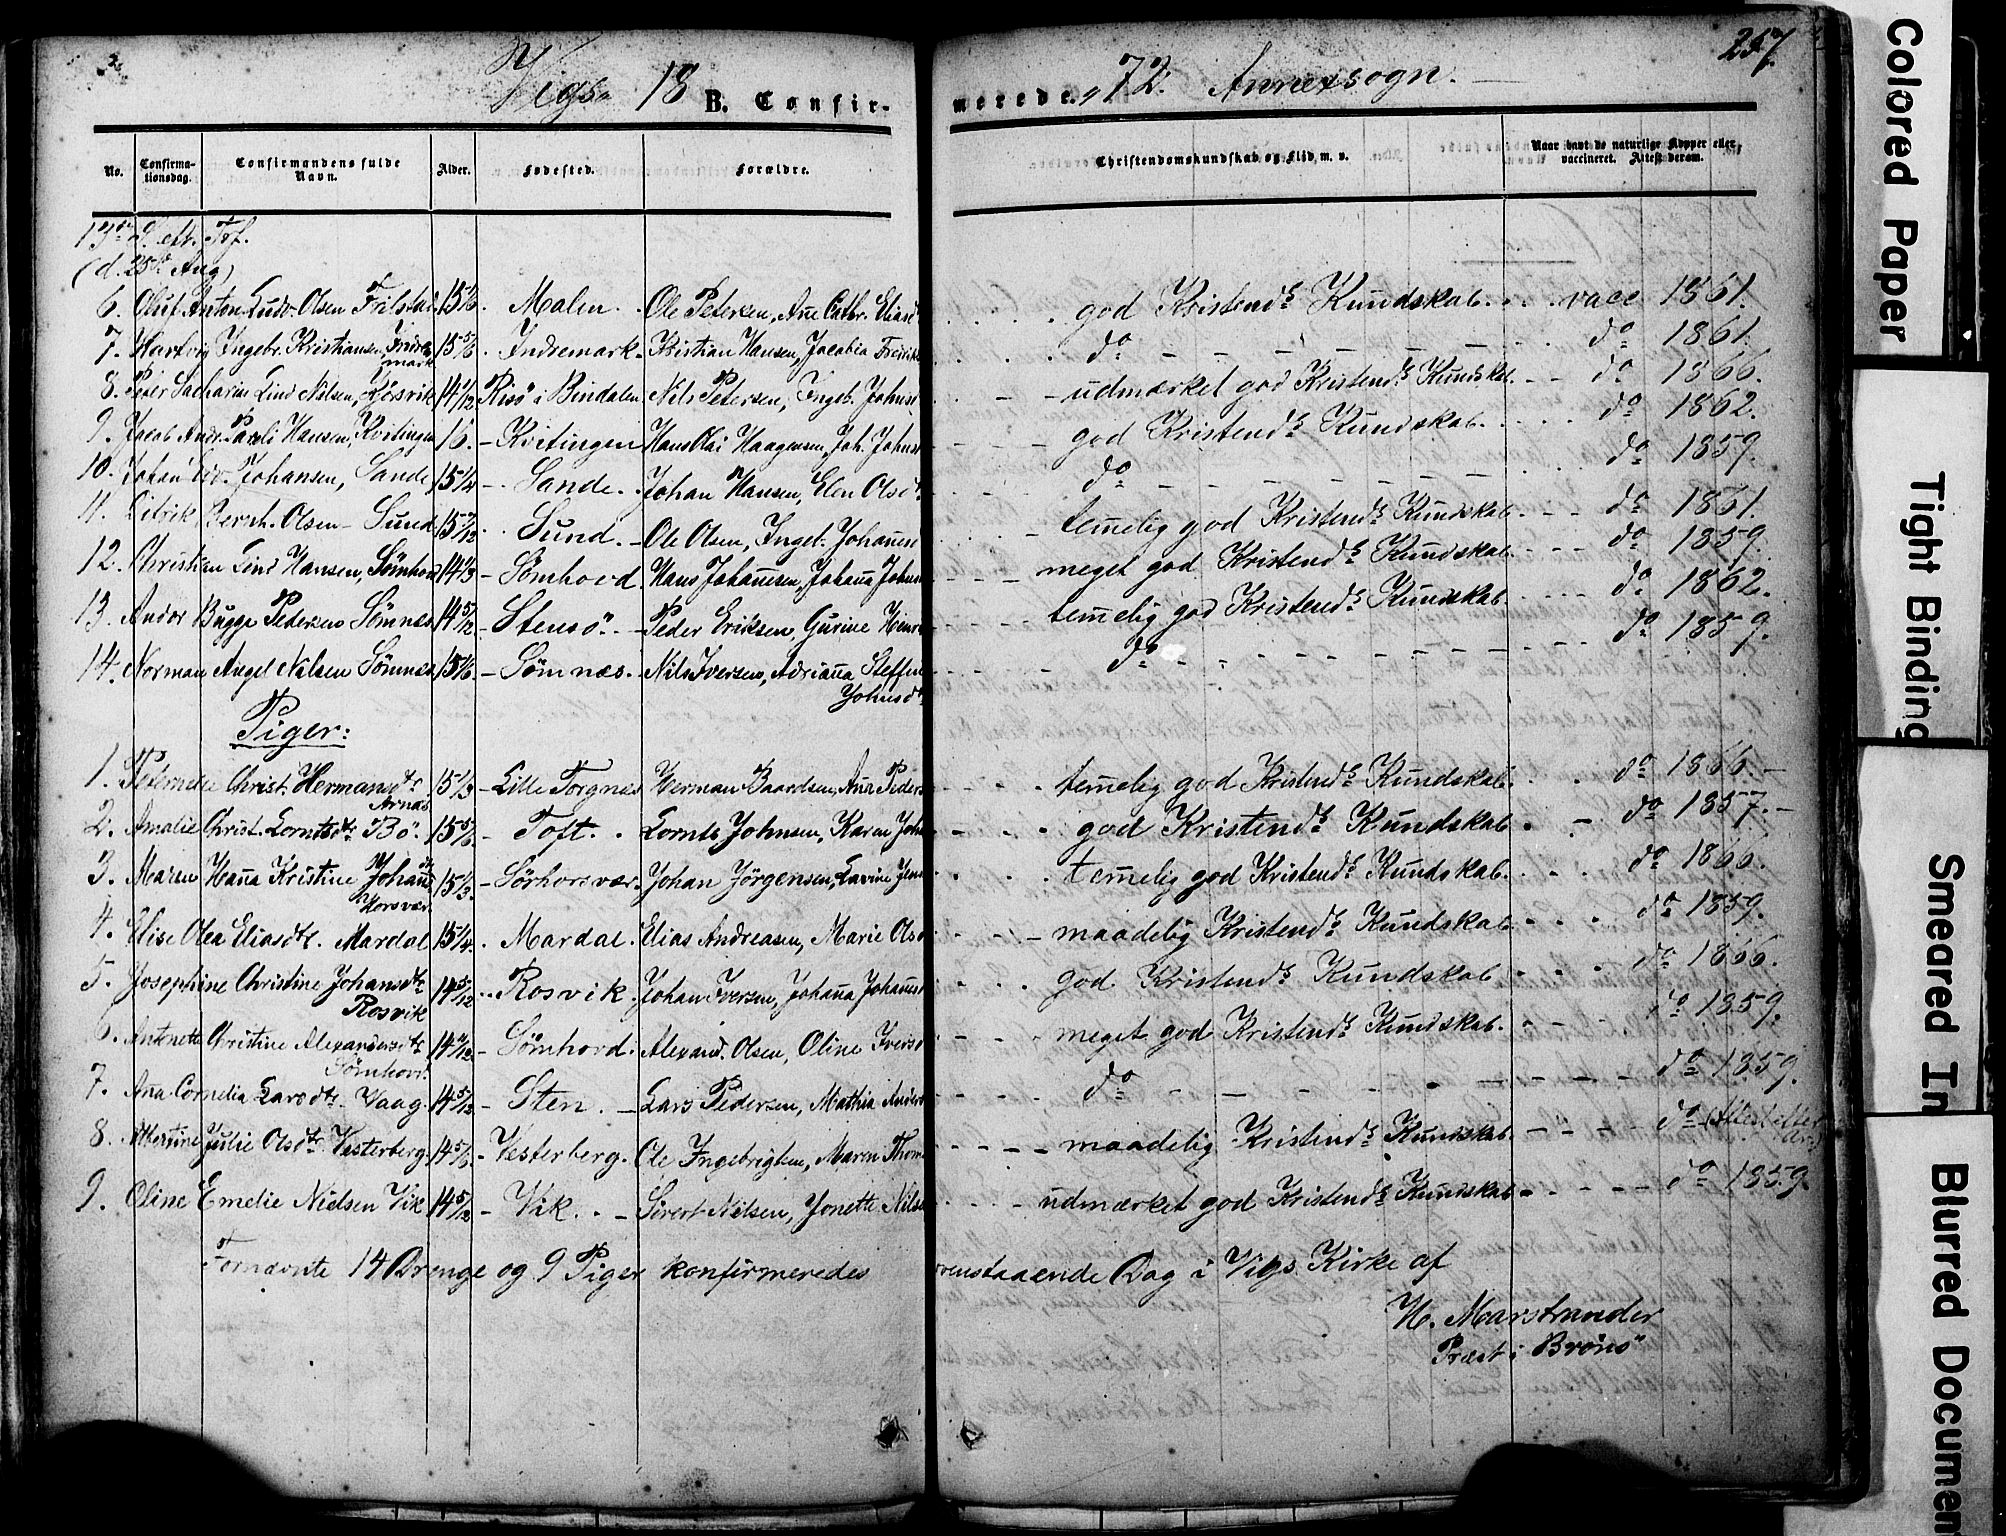 257.
Vigs 18 B. Confirmerede. 72. Annexsogn.
No. Confirmationsdag. Confirmandens fulde Navn. Alder. Fødested. Forældre. Christendomskundskab og Flid m. v. Naar havt de naturlige Kopper eller vaccineret. Attest derom.
13de S. eft. Tref.
(d. 25de Aug)
6. Oluf Anton Ludv. Olsen 15 1/6 Malen. Ole Petersen, Ane Cathr. Elias god Kristends Kundskab. vacc 1861.
7. Hartvig Ingebr. Kristiansen, Indremark 15 5/6 Indremark Kristian Hansen, Jacobia Fredriks do do 1861.
8. Peter Zacharias Lind Nilsen, 14 1/12 Risö i Bindalen Nils Petersen, Ingeb. Johns udmærket god Kristends Kundskab. do 1866.
9. Jacob Andr. Pareli Hansen, Kvitingen 16. Kvitingen Hans Olai Haagensen, Joh. Johns god Kristends Kundskab. do 1862.
10. Johan Edv. Johansen, Sande 15 1/4 Sande. Johan Hansen, Elen Olsd do do 1859.
11. Bernh. Olsen Sund 15 Sund. Ole Olsen, Ingeb. Johanes temelig god Kristends Kundskab. do 1861.
12. Christian Lind Hansen, Sömhovd 14 1/3 Sömhovd. Hans Johanesen, Johana Johns meget god Kristends Kundskab. do 1859.
13. Andor Bugge Pedersen Sömnes 14 5/12 Stensö Peder Eriksen, Gurine Henr temelig god Kristends Kundskab. do 1862.
14. Norman Angel Nilsen Sömnes 15 1/6 Sömnæs. Nils Iversen, Adriana Steffen Johnsdt do do 1859.
Piger:
1. Peternelle Christ. Hermansdtr Arnæs 15 1/3 Lille Torgnes Herman Baardsen, Ana Peders temelig god Kristends Kundskab. do 1866.
2. Amalie Christ. Lorntsdtr Bö. 15 5/6 Toft. Lornts Johnsen, Karen Joh god Kristends Kundskab do 1857.
3. Maren Hana Kristine Johans Horsvær. 15 1/3 Sörhorsvær. Johan Jörgensen, Lavine Jens temelig god Kristends Kundskab. do 1866.
4. Elise Olea Eliasdtr. Mardal 15 1/4 Mardal. Elias Andreasen, Marie Olsd maadelig Kristends Kundskab do 1859.
5. Josephine Christine Johansdtr Rosvik 14 5/12 Rosvik. Johan Iversen, Johana Johanes god Kristends Kundskab do 1866.
6. Antonette Christine Alexandersdtr Sömhovd. 14 Sömhovd. Alexand. Olsen, Oline Iversd meget god Kristends Kundskab. do 1859.
7. Ana Cornelia Larsdtr Vaag. 14 5/12 Sten. Lars Pedersen, Mathia Anders do do 1859.
8. Albertine Julie Olsdtr Vesterberg. 14 5/6 Vesterberg. Ole Ingebrigtsen, Maren Thom maadelig Kristends Kundskab. do (Attest efter
9. Oline Emelie Nielsen Vik 14 5/12 Vik. Sivert Nilsen, Jonette Nils udmærket god Kristends Kundskab do 1859
Fornævnte 14 Drenge og 9 Piger konfirmeredes ovenstaaende Dag i Vigs Kirke af
H. Marstrander
Præst i Brönö
Colored Paper
Tight Binding
Smeared In
Blurred Documen